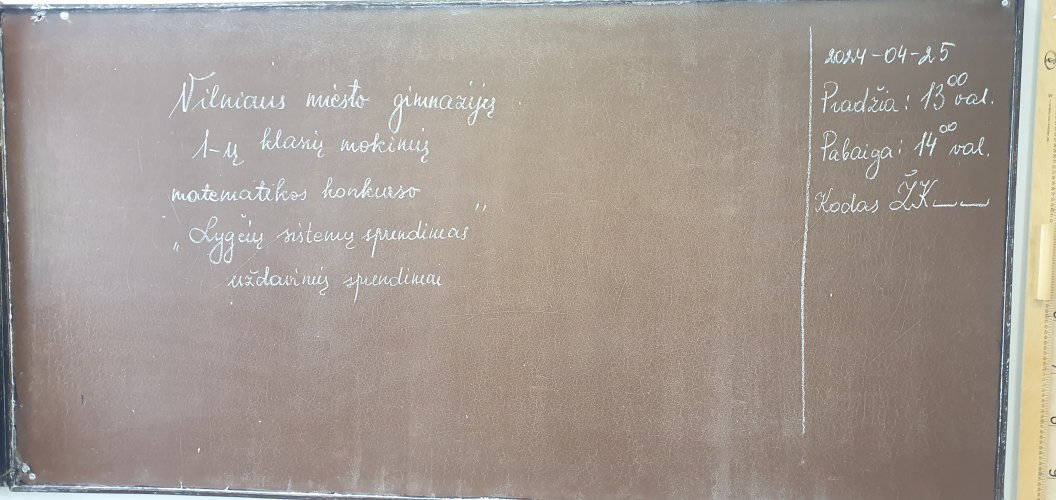 Vilniaus miesto gimnazijų
1-ų klasių mokinių
matematikos konkurso
„Lygčių sistemų sprendimas"
uždavinių sprendimai
2024-04-25
Pradžia: 13⁰⁰ val.
Pabaiga: 14⁰⁰ val.
Kodas ŽK__ __